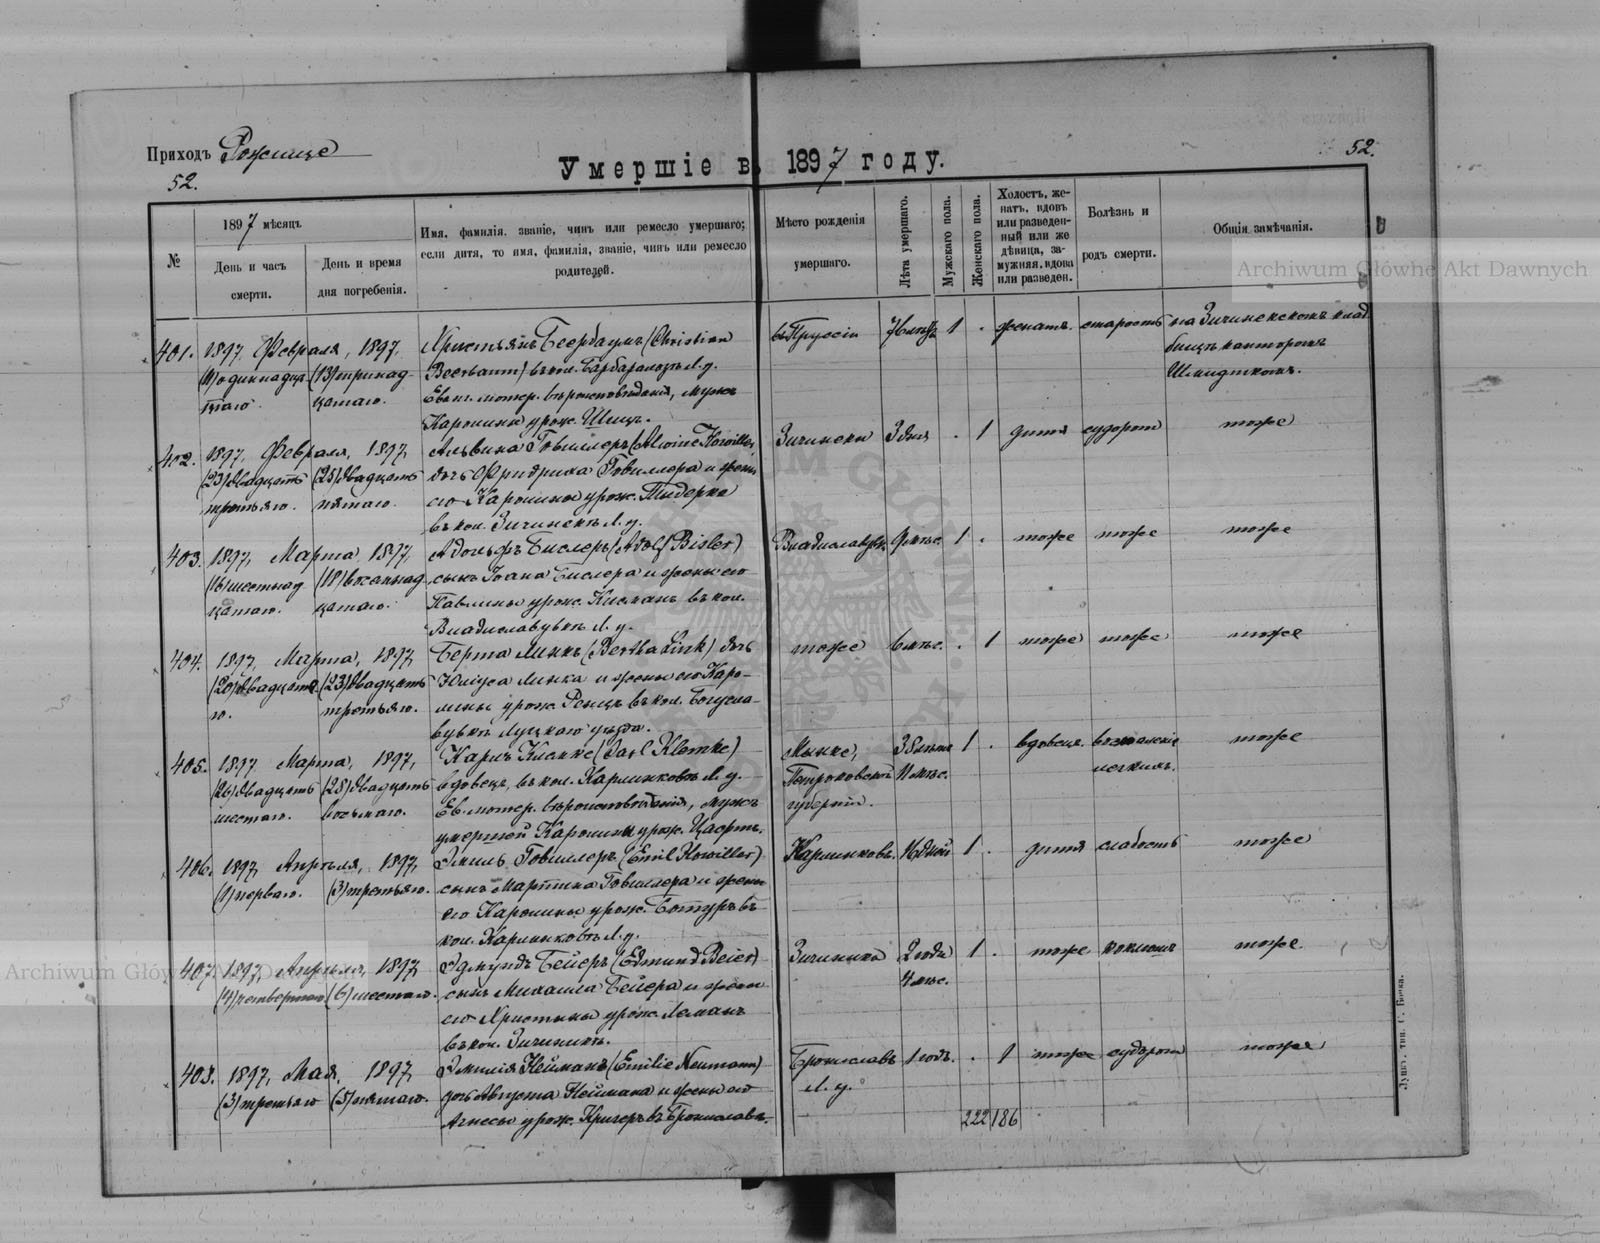 Приходъ Рожище
52.
Умершіе въ 1897 году.
52.
№
1897 мѣсяцъ
День и часъ смерти.
День и время дня погребенія.
Имя, фамилія, званіе, чинъ или ремесло умершаго;
если дитя, то имя, фамилія, званіе, чинъ или ремесло
родителей.
Мѣсто рожденія
умершаго.
Лѣта умершаго.
Мужскаго пола.
Женскаго пола.
Холостъ, же-
натъ, вдовъ
или разведен-
ный или же
дѣвица, за-
мужняя, вдова
или разведен.
Болѣзнь и
родъ смерти.
Общія замѣчанія.
Archiwum Główne Akt Dawnych
401. 1897, Февраля, 1897, Христьянъ Беербаумъ (Christian въ Пруссіи 1 . женатъ. старость на
(11) одиннадца (13) тринад- Beerbaum) въ кол. Л. у. кантором
таго. цатаго. Еванг. лютер. вѣроисповѣданія, мужъ
Каролины урож. Шицъ.
402. 1897, Февраля, 1897, Альвина Говиллеръ (Alwine Kowiller) 3 дня . 1 дитя судорги тоже
(23) двадцать (25) двадцать дочь Фридриха Говиллера и жены
третьяго. пятаго. его Каролины урож.
въ кол. Л. у.
403. 1897, Марта 1897, Адольфъ Бислеръ (Adolf Bisler) 9 мѣс. 1 . тоже тоже тоже
(16) шестнад (18) восемнад. сынъ Іоана Бислера и жены его
цатаго. цатаго. Павлины урож. въ кол.
Владиславувкѣ Л. у.
404. 1897, Марта, 1897, Берта Линкъ (Bertha Link) дочь тоже 6 мѣс. . 1 тоже тоже тоже
(20) двадцата (23) двадцать Юліуса Линка и жены его Каро-
го. третьяго. лины урож. Ренцъ въ кол. Богусла-
вувкѣ Луцкаго уѣзда.
405. 1897 Марта, 1897, Карлъ Клемке (Carl Klemke) 38 лѣтъ 1 . вдовецъ. воспаленіе тоже
(26) двадцать (28) двадцать вдовецъ, въ кол. Карлинковѣ Л. у. Петроковской 11 мѣс. легкихъ.
шестаго. восьмаго. Ев. лютер. вѣроисповѣданія, мужъ губерніи.
умершей Каролины урож.
406. 1897, Апрѣля, 1897, Эмиль Говиллеръ (Emil Kowiller) Карлинковъ. 16 дней 1 . дитя слабость тоже
(1) перваго. (3) третьяго. сынъ Мартина Говиллера и жены
его Каролины урож. въ
кол. Карлинковѣ Л. у.
407. 1897, Апрѣля, 1897, Эдмундъ Бейеръ (Edmund Beier) 2 года 1 . тоже коклюшъ тоже.
(4) четвертаго (6) шестаго. сынъ Михаила Бейера и жены 4 мѣс.
его Христины урож. Леманъ
въ кол.
408. 1897, Мая, 1897, Эмилія Нейманъ (Emilie Neumann) Брониславъ 1 годъ. . 1 тоже судорги тоже
(3) третьяго (5) пятаго. дочь Августа Неймана и жены его Л. у.
Агнесы урож. Кригеръ въ Брониславѣ.
222 186
Archiwum Główne Akt Dawnych
Луцкъ, тип. С. Бонка.